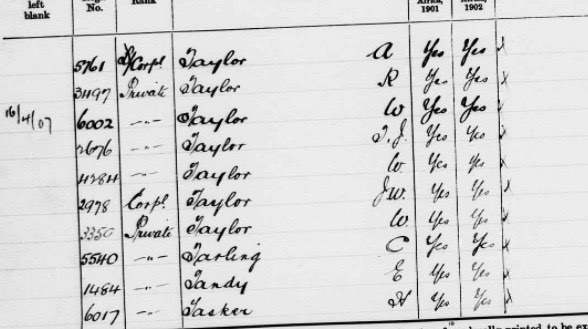 left No. Rank Africa, 1901 1902
blank
5761 L/Corpl Taylor A Yes Yes x
3497 Private Taylor R Yes Yes x
16/4/07 6002 -"- Taylor W Yes Yes x
2676 -"- Taylor T.J. Yes Yes x
4284 -"- Taylor W. Yes Yes x
2978 Corpl Taylor J.W. Yes Yes x
3350 Private Taylor W Yes Yes x
5540 -"- Tarling C Yes Yes x
1484 -"- Tandy E Yes Yes x
6017 -"- Tasker H Yes Yes x